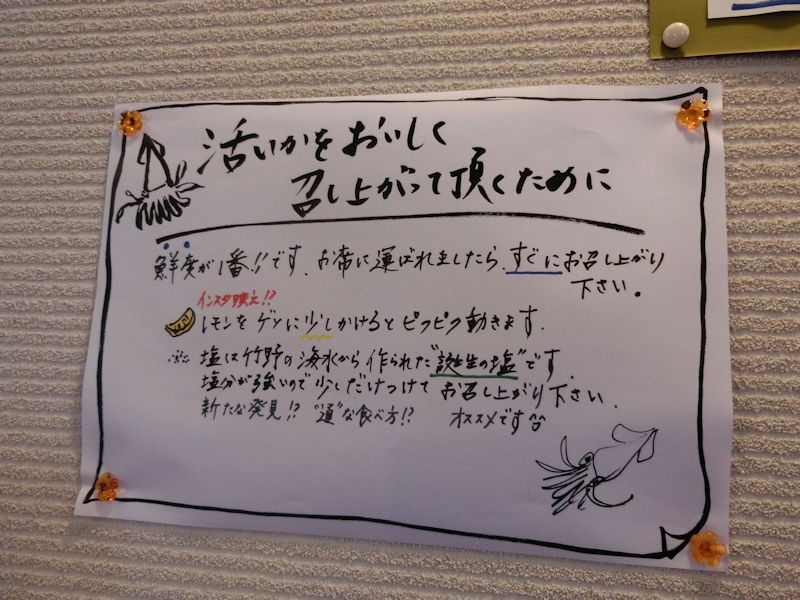 活いかをおいしく
召し上がって頂くために
鮮度が1番!!です。お席に運ばれましたら、すぐにお召し上がり
下さい。
インスタ映え!?
レモンをゲソに少しかけるとピクピク動きます。
塩は竹野の海水から作られた"誕生の塩"です
塩分が強いので少しだけつけてお召し上がり下さい。
新たな発見!? "通"な食べ方!? オススメです^^